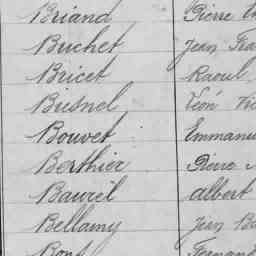 Briand Pierre
Buchet Jean
Bricet Raoul
Biesnel Léon
Bouvet Emmanu
Berthier Pierre
Baurèl Albert
Bellamy Jean
Bont Fernand